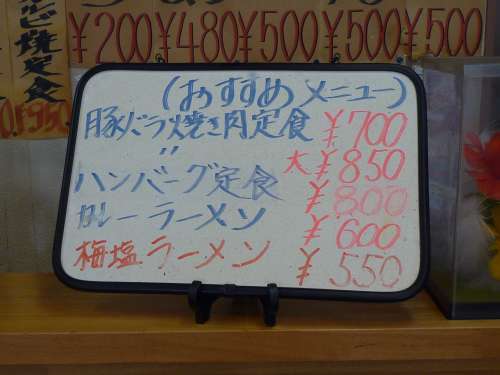 ¥200 ¥480 ¥500 ¥500 ¥500
焼定食
(おすすめメニュー)
豚バラ焼き肉定食 ¥700
〃 大 ¥850
ハンバーグ定食 ¥800
カレーラーメン ¥600
梅塩ラーメン ¥550